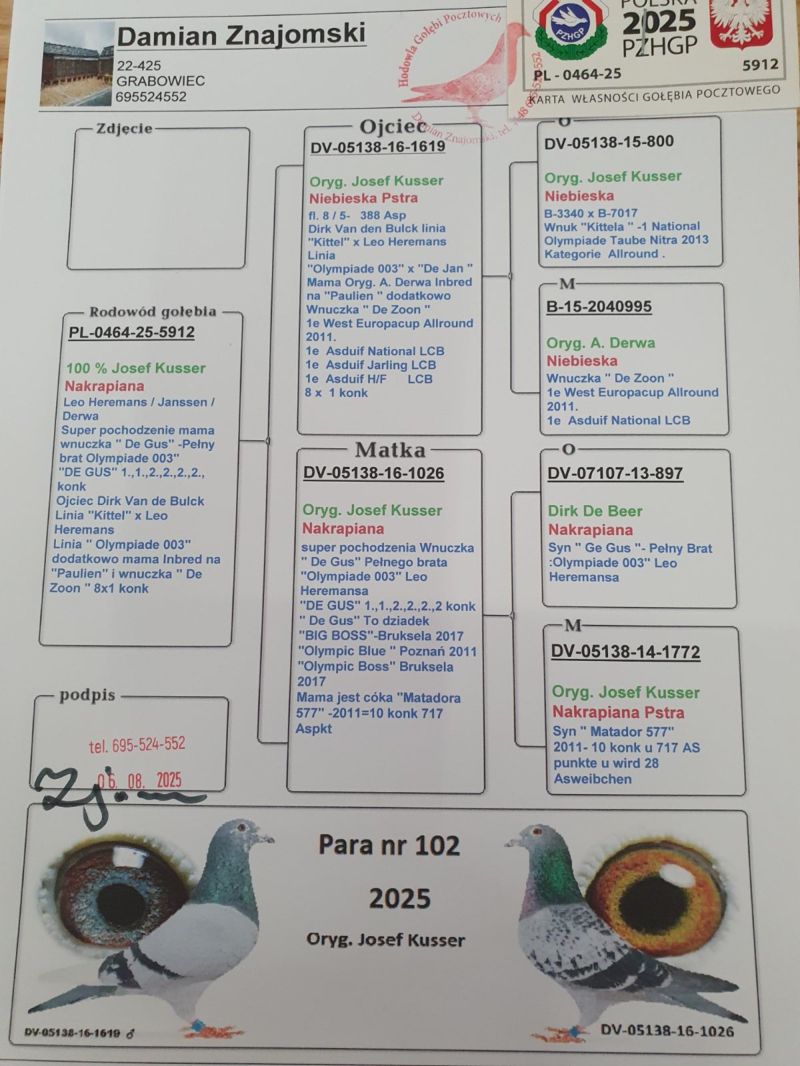 Damian Znajomski
22-425
GRABOWIEC
695524552
Hodowla Gołębi Pocztowych
Damian Znajomski, tel.
POLSKA
2025
PZHGP
PZHGP
PL - 0464-25
5912
KARTA WŁASNOŚCI GOŁĘBIA POCZTOWEGO
Zdjęcie
Rodowód gołębia
PL-0464-25-5912
100 % Josef Kusser
Nakrapiana
Leo Heremans / Janssen /
Derwa
Super pochodzenie mama
wnuczka " De Gus" -Pełny
brat Olympiade 003"
"DE GUS" 1.,1.,2.,2.,2.,2.,
konk
Ojciec Dirk Van de Bulck
Linia "Kittel" x Leo
Heremans
Linia " Olympiade 003"
dodatkowo mama Inbred na
"Paulien" i wnuczka " De
Zoon " 8x1 konk
podpis
tel. 695-524-552
06. 08. 2025
Ojciec
DV-05138-16-1619
Oryg. Josef Kusser
Niebieska Pstra
fl. 8 / 5- 388 Asp
Dirk Van den Bulck linia
"Kittel" x Leo Heremans
Linia
"Olympiade 003" x "De Jan "
Mama Oryg. A. Derwa Inbred
na "Paulien " dodatkowo
Wnuczka " De Zoon "
1e West Europacup Allround
2011.
1e Asduif National LCB
1e Asduif Jarling LCB
1e Asduif H/F LCB
8 x 1 konk
Matka
DV-05138-16-1026
Oryg. Josef Kusser
Nakrapiana
super pochodzenia Wnuczka
" De Gus" Pełnego brata
"Olympiade 003" Leo
Heremansa
"DE GUS" 1.,1.,2.,2.,2.,2 konk
" De Gus" To dziadek
"BIG BOSS"-Bruksela 2017
"Olympic Blue " Poznań 2011
"Olympic Boss" Bruksela
2017
Mama jest córka "Matadora
577" -2011=10 konk 717
Aspkt
O
DV-05138-15-800
Oryg. Josef Kusser
Niebieska
B-3340 x B-7017
Wnuk "Kittela " -1 National
Olympiade Taube Nitra 2013
Kategorie Allround .
M
B-15-2040995
Oryg. A. Derwa
Niebieska
Wnuczka " De Zoon "
1e West Europacup Allround
2011.
1e Asduif National LCB
O
DV-07107-13-897
Dirk De Beer
Nakrapiana
Syn " Ge Gus "- Pełny Brat
:Olympiade 003" Leo
Heremansa
M
DV-05138-14-1772
Oryg. Josef Kusser
Nakrapiana Pstra
Syn " Matador 577"
2011- 10 konk u 717 AS
punkte u wird 28
Asweibchen
Para nr 102
2025
Oryg. Josef Kusser
DV-05138-16-1619 ♂
DV-05138-16-1026